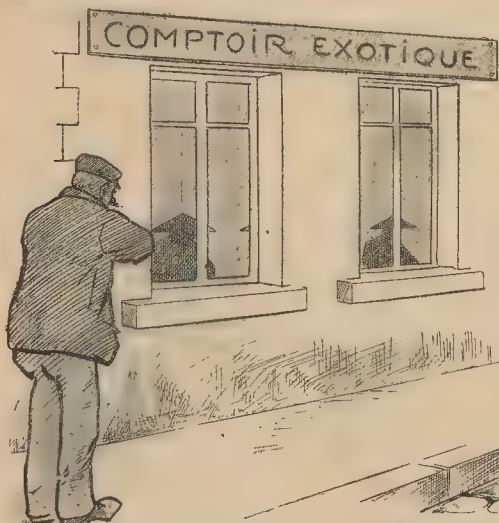 COMPTOIR EXOTIQUE